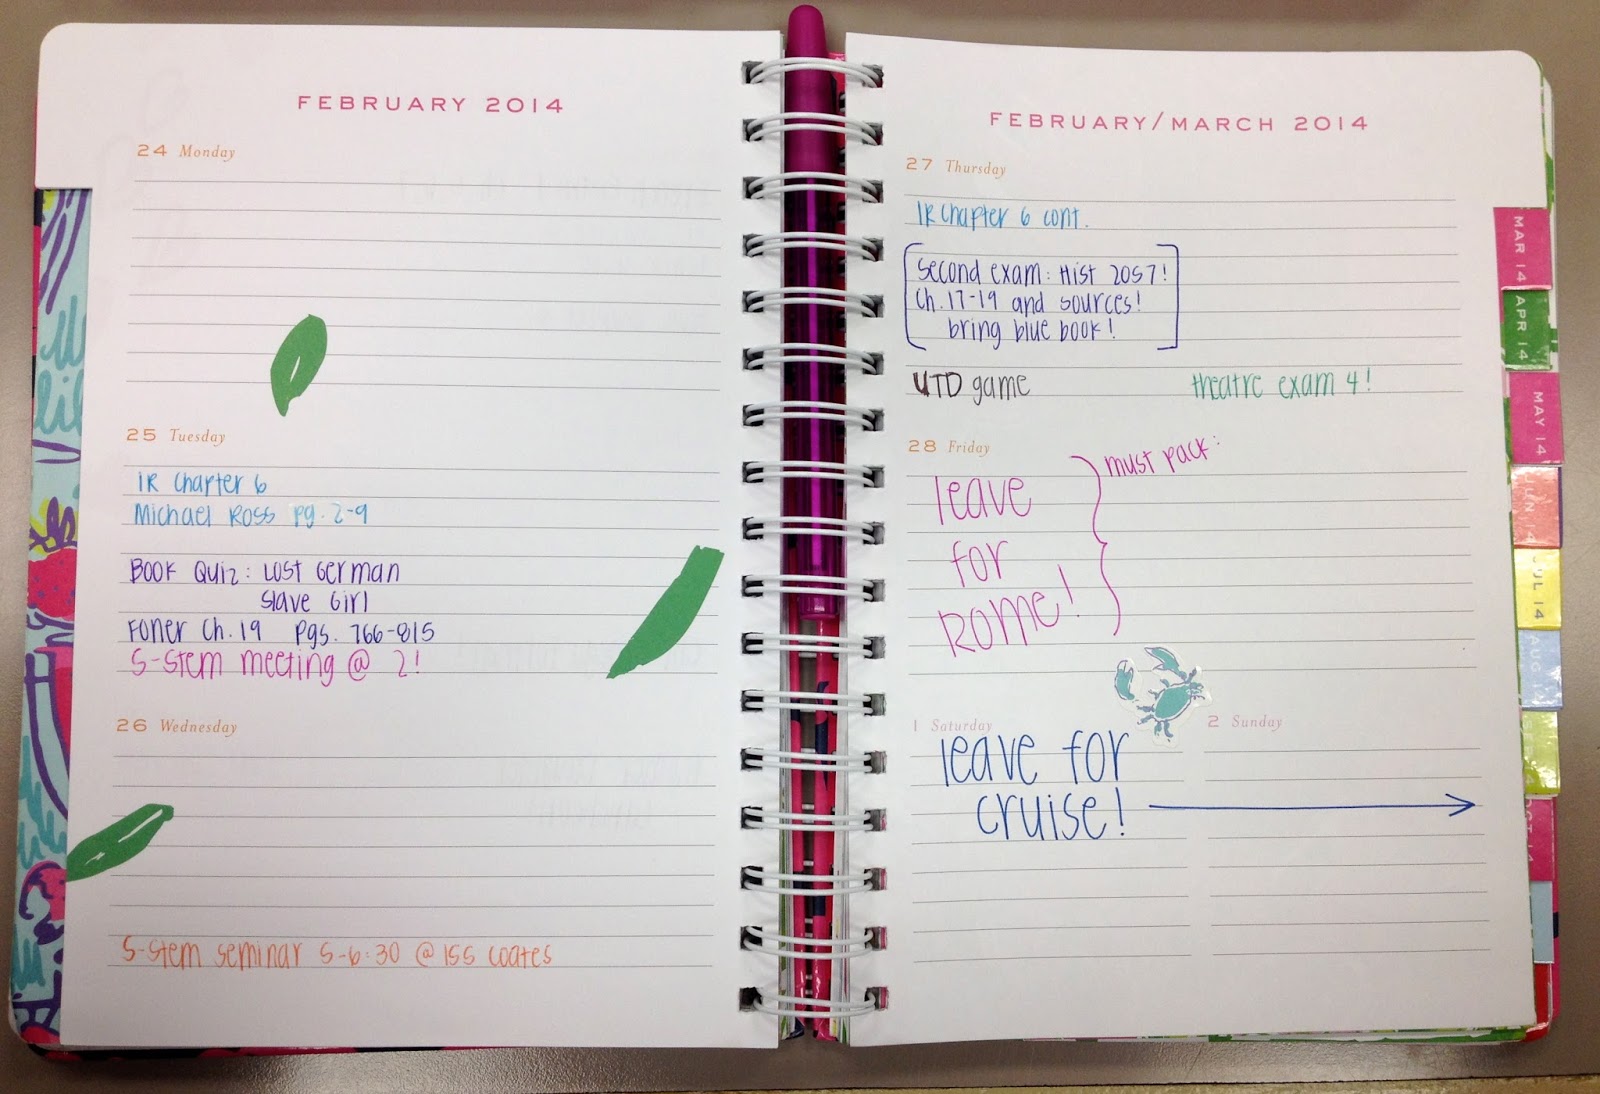 FEBRUARY 2014
24 Monday
25 Tuesday
IR Chapter 6
Michael Ross pg. 2-9
Book Quiz: Lost German
Slave Girl
Foner Ch. 19 pgs. 766-815
S-Stem meeting @ 2!
26 Wednesday
S-Stem seminar 5-6:30 @ 155 Coates
FEBRUARY/MARCH 2014
27 Thursday
IR Chapter 6 cont.
Second exam: Hist 2057!
Ch. 17-19 and sources!
bring blue book!
UTD game theatre exam 4!
28 Friday
must pack:
leave
for
Rome!
1 Saturday 2 Sunday
leave for
cruise!
MAR 14
APR 14
MAY 14
JUN 14
JUL 14
AUG
OCT 14